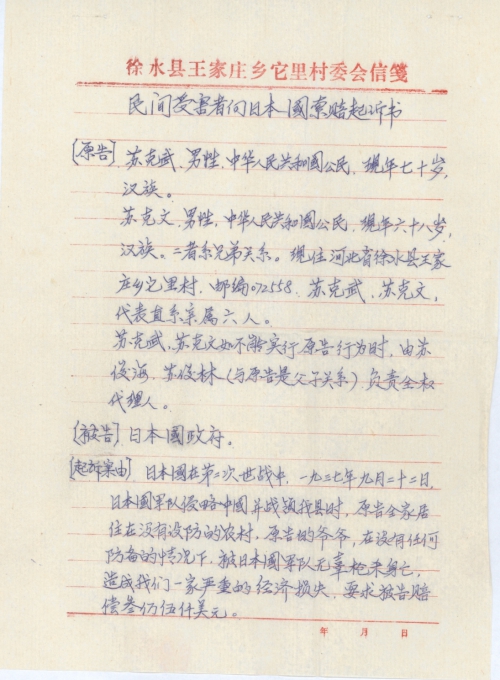 徐水县王家庄乡它里村委会信笺
民间受害者向日本國索赔起诉书
[原告] 苏克武、男性、中华人民共和國公民、现年七十岁,
汉族。
苏克文、男性、中华人民共和國公民、现年六十八岁,
汉族。二者系兄弟关系。现住河北省徐水县王家
庄乡它里村、邮编072558. 苏克武、苏克文,
代表直系亲属六人。
苏克武、苏克文如不能实行原告行为时,由苏
俊海、苏俊林(与原告是父子关系)负责全权
代理人。
[被告] 日本國政府。
[起诉案由] 日本國在第二次世战中,一九三七年九月二十二日,
日本國军队侵略中國并战领我县时,原告全家居
住在没有设防的农村,原告的爷爷,在没有任何
防备的情况下,被日本國军队无辜枪杀身亡,
造成我们一家严重的经济损失,要求被告赔
偿叁仂伍仟美元。
年 月 日